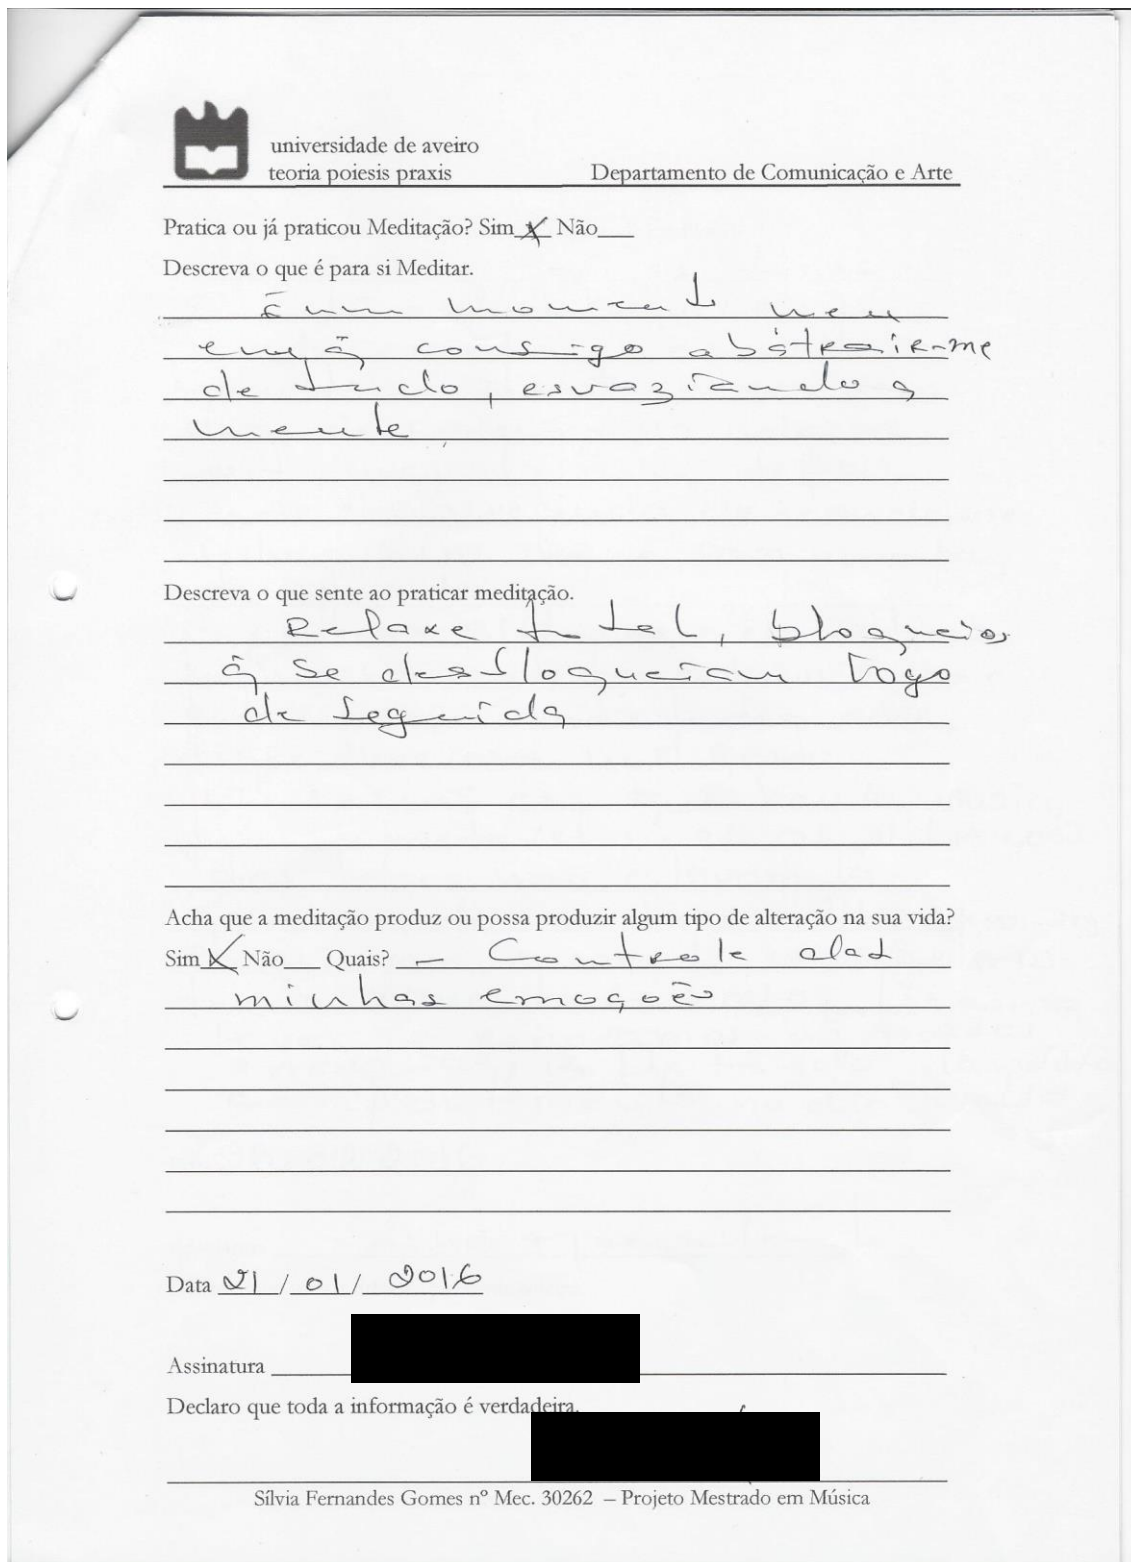 universidade de aveiro
teoria poiesis praxis Departamento de Comunicação e Arte
Pratica ou já praticou Meditação? Sim X Não___
Descreva o que é para si Meditar.
É um momento meu
em q̃ consigo abstrair-me
de tudo, esvaziando a
mente
Descreva o que sente ao praticar meditação.
Relaxe total, bloqueios
q̃ se desbloqueiam logo
de seguida
Acha que a meditação produz ou possa produzir algum tipo de alteração na sua vida?
Sim X Não___ Quais? – Controle das
minhas emoções
Data 21/01/2016
Assinatura
Declaro que toda a informação é verdadeira.
Sílvia Fernandes Gomes nº Mec. 30262 – Projeto Mestrado em Música